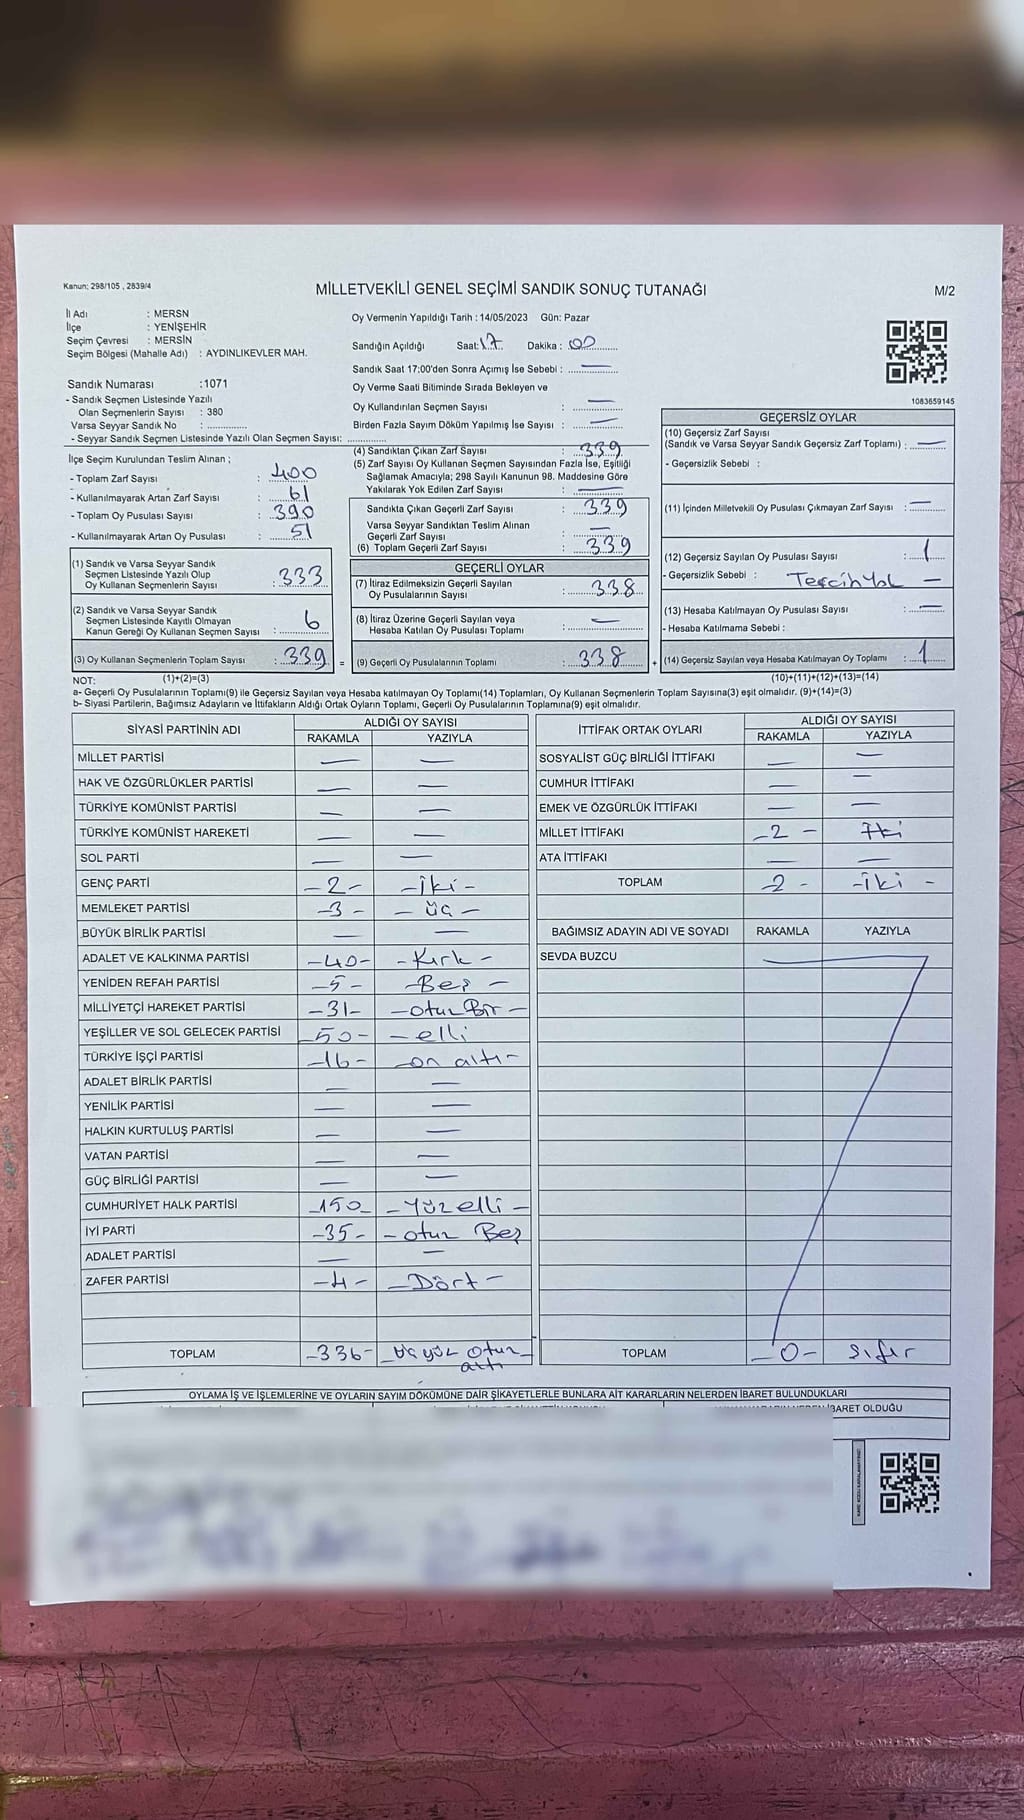 Kanun: 298/105 , 2839/4
MİLLETVEKİLİ GENEL SEÇİMİ SANDIK SONUÇ TUTANAĞI
M/2
İl Adı : MERSN
İlçe : YENİŞEHİR
Seçim Çevresi : MERSİN
Seçim Bölgesi (Mahalle Adı) : AYDINLIKEVLER MAH.
Oy Vermenin Yapıldığı Tarih : 14/05/2023 Gün: Pazar
Sandığın Açıldığı Saat: 17 Dakika : 00
Sandık Saat 17:00'den Sonra Açımış İse Sebebi : —
Oy Verme Saati Bitiminde Sırada Bekleyen ve
Oy Kullandırılan Seçmen Sayısı : —
Birden Fazla Sayım Döküm Yapılmış İse Sayısı : —
1083659145
Sandık Numarası :1071
- Sandık Seçmen Listesinde Yazılı
Olan Seçmenlerin Sayısı : 380
Varsa Seyyar Sandık No :
- Seyyar Sandık Seçmen Listesinde Yazılı Olan Seçmen Sayısı:
İlçe Seçim Kurulundan Teslim Alınan ;
- Toplam Zarf Sayısı : 400
- Kullanılmayarak Artan Zarf Sayısı : 61
- Toplam Oy Pusulası Sayısı : 390
- Kullanılmayarak Artan Oy Pusulası : 51
(1) Sandık ve Varsa Seyyar Sandık
Seçmen Listesinde Yazılı Olup
Oy Kullanan Seçmenlerin Sayısı : 333
(2) Sandık ve Varsa Seyyar Sandık
Seçmen Listesinde Kayıtlı Olmayan
Kanun Gereği Oy Kullanan Seçmen Sayısı : 6
(3) Oy Kullanan Seçmenlerin Toplam Sayısı : 339 =
(4) Sandıktan Çıkan Zarf Sayısı : 339
(5) Zarf Sayısı Oy Kullanan Seçmen Sayısından Fazla İse, Eşitliği
Sağlamak Amacıyla; 298 Sayılı Kanunun 98. Maddesine Göre
Yakılarak Yok Edilen Zarf Sayısı : —
Sandıkta Çıkan Geçerli Zarf Sayısı : 339
Varsa Seyyar Sandıktan Teslim Alınan
Geçerli Zarf Sayısı : —
(6) Toplam Geçerli Zarf Sayısı : 339
GEÇERLİ OYLAR
(7) İtiraz Edilmeksizin Geçerli Sayılan
Oy Pusulalarının Sayısı : 338
(8) İtiraz Üzerine Geçerli Sayılan veya
Hesaba Katılan Oy Pusulası Toplamı : —
(9) Geçerli Oy Pusulalarının Toplamı : 338 +
GEÇERSİZ OYLAR
(10) Geçersiz Zarf Sayısı
(Sandık ve Varsa Seyyar Sandık Geçersiz Zarf Toplamı) : —
- Geçersizlik Sebebi :
(11) İçinden Milletvekili Oy Pusulası Çıkmayan Zarf Sayısı : —
(12) Geçersiz Sayılan Oy Pusulası Sayısı : 1
- Geçersizlik Sebebi : Tercih Yok —
(13) Hesaba Katılmayan Oy Pusulası Sayısı : —
- Hesaba Katılmama Sebebi :
(14) Geçersiz Sayılan veya Hesaba Katılmayan Oy Toplamı : 1
NOT: (1)+(2)=(3) (10)+(11)+(12)+(13)=(14)
a- Geçerli Oy Pusulalarının Toplamı(9) ile Geçersiz Sayılan veya Hesaba katılmayan Oy Toplamı(14) Toplamları, Oy Kullanan Seçmenlerin Toplam Sayısına(3) eşit olmalıdır. (9)+(14)=(3)
b- Siyasi Partilerin, Bağımsız Adayların ve İttifakların Aldığı Ortak Oyların Toplamı, Geçerli Oy Pusulalarının Toplamına(9) eşit olmalıdır.
SİYASİ PARTİNİN ADI ALDIĞI OY SAYISI
RAKAMLA YAZIYLA
MİLLET PARTİSİ — —
HAK VE ÖZGÜRLÜKLER PARTİSİ — —
TÜRKİYE KOMÜNİST PARTİSİ — —
TÜRKİYE KOMÜNİST HAREKETİ — —
SOL PARTİ — —
GENÇ PARTİ -2- -iki-
MEMLEKET PARTİSİ -3- - üç -
BÜYÜK BİRLİK PARTİSİ — —
ADALET VE KALKINMA PARTİSİ -40- - Kırk -
YENİDEN REFAH PARTİSİ -5- -Beş -
MİLLİYETÇİ HAREKET PARTİSİ -31- -otuz Bir -
YEŞİLLER VE SOL GELECEK PARTİSİ -50- - elli
TÜRKİYE İŞÇİ PARTİSİ -16- -on altı-
ADALET BİRLİK PARTİSİ — —
YENİLİK PARTİSİ — —
HALKIN KURTULUŞ PARTİSİ — —
VATAN PARTİSİ — —
GÜÇ BİRLİĞİ PARTİSİ — —
CUMHURİYET HALK PARTİSİ -150- -Yüz elli -
İYİ PARTİ -35- - otuz Beş
ADALET PARTİSİ — —
ZAFER PARTİSİ -4- -Dört-
TOPLAM -336- -üç yüz otuz-
altı
İTTİFAK ORTAK OYLARI ALDIĞI OY SAYISI
RAKAMLA YAZIYLA
SOSYALİST GÜÇ BİRLİĞİ İTTİFAKI — —
CUMHUR İTTİFAKI — —
EMEK VE ÖZGÜRLÜK İTTİFAKI — —
MİLLET İTTİFAKI -2- İki
ATA İTTİFAKI — —
TOPLAM -2- -iki -
BAĞIMSIZ ADAYIN ADI VE SOYADI RAKAMLA YAZIYLA
SEVDA BUZCU —
TOPLAM -0- sıfır
OYLAMA İŞ VE İŞLEMLERİNE VE OYLARIN SAYIM DÖKÜMÜNE DAİR ŞİKAYETLERLE BUNLARA AİT KARARLARIN NELERDEN İBARET BULUNDUKLARI
İBARET OLDUĞU